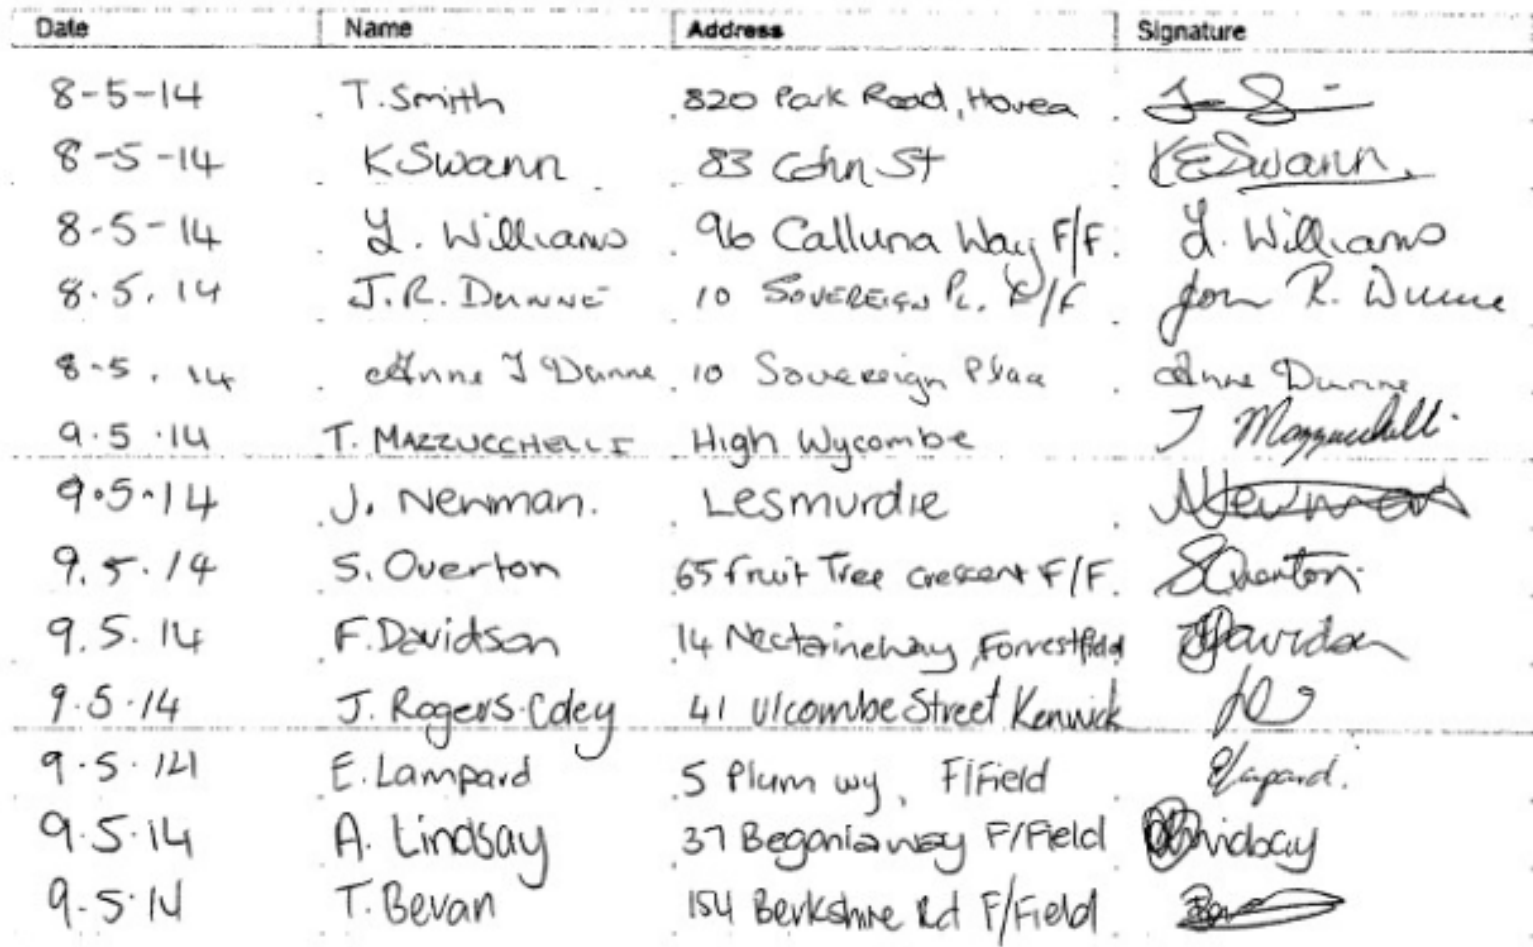 Date Name Address Signature
8-5-14 T. Smith 820 Park Road, Hovea
8-5-14 K Swann 83 Cohn St KE Swann.
8-5-14 L. Williams 96 Calluna Way F/F. L. Williams
8.5.14 J.R. DUNNE 10 SOVEREIGN PL. F/F John R. Dunne
8-5.14 Anne J Dunne 10 Sovereign Place Anne Dunne
9.5.14 T. MAZZUCCHELLI High Wycombe T Mazzucchelli.
9.5.14 J. Newman. Lesmurdie Newman
9.5.14 S. Overton 65 fruit Tree crescent F/F. S Overton.
9.5.14 F. Davidson 14 Nectarine way, Forrestfield F Davidson
9.5.14 J. Rogers-Coley 41 Ulcombe Street Kenwick
9.5.14 E. Lampard 5 Plum wy, F/Field E Lampard.
9.5.14 A. Lindsay 37 Begonia way F/Field Lindsay
9.5.14 T. Bevan 154 Berkshire Rd F/Field